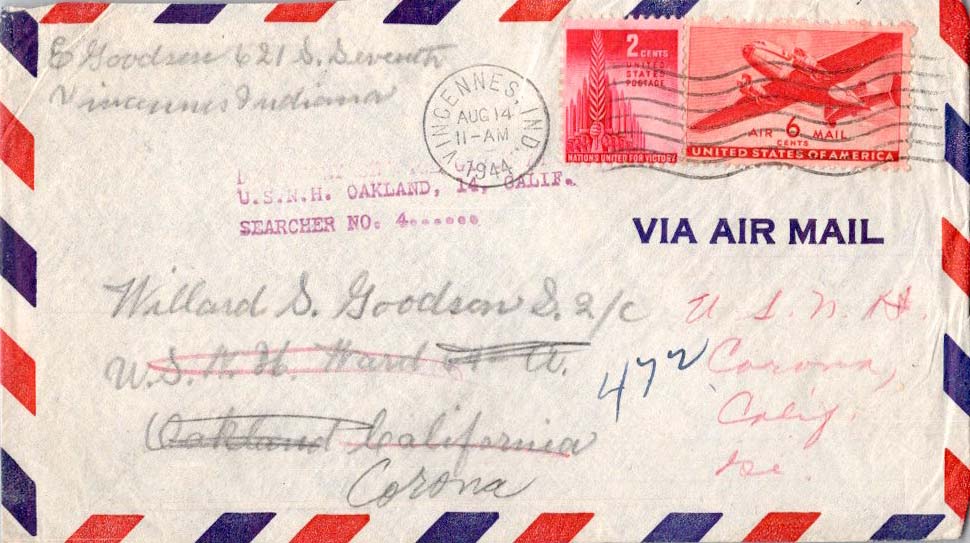 E Goodson 621 S. Seventh
Vincennes Indiana
VINCENNES, IND.
AUG 14
11-AM
1944
2 CENTS
UNITED STATES POSTAGE
NATIONS UNITED FOR VICTORY
AIR 6 MAIL
CENTS
UNITED STATES OF AMERICA
U.S.N.H. OAKLAND, 14, CALIF.
SEARCHER NO. 4......
VIA AIR MAIL
Willard S. Goodson S. 2/c
U.S.N.H. Ward A.
Oakland California
Corona
472
U S. N. H.
Corona,
Calif.